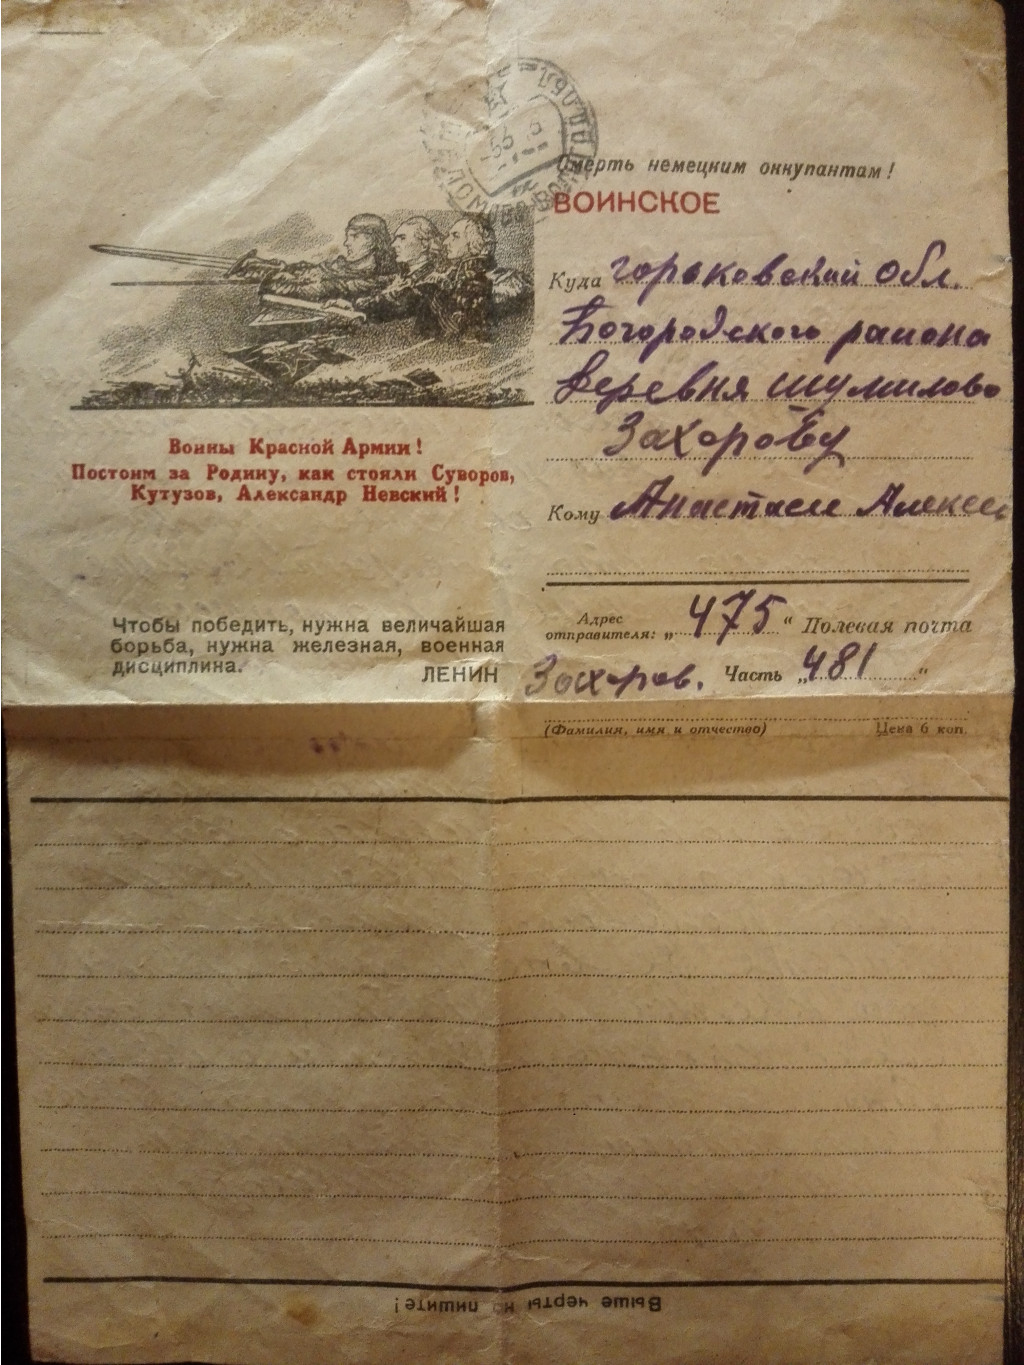 Смерть немецким оккупантам!
ВОИНСКОЕ
Куда горьковский обл.
Богородского района
деревня шумилово
Захорову
Кому Анастасее Алексее
Воины Красной Армии!
Постоим за Родину, как стояли Суворов,
Кутузов, Александр Невский!
Чтобы победить, нужна величайшая
борьба, нужна железная, военная
дисциплина.
ЛЕНИН
Адрес
отправителя: „475“ Полевая почта
Захоров. Часть „481“
(Фамилия, имя и отчество) Цена 6 коп.
Выше черты не пишите!